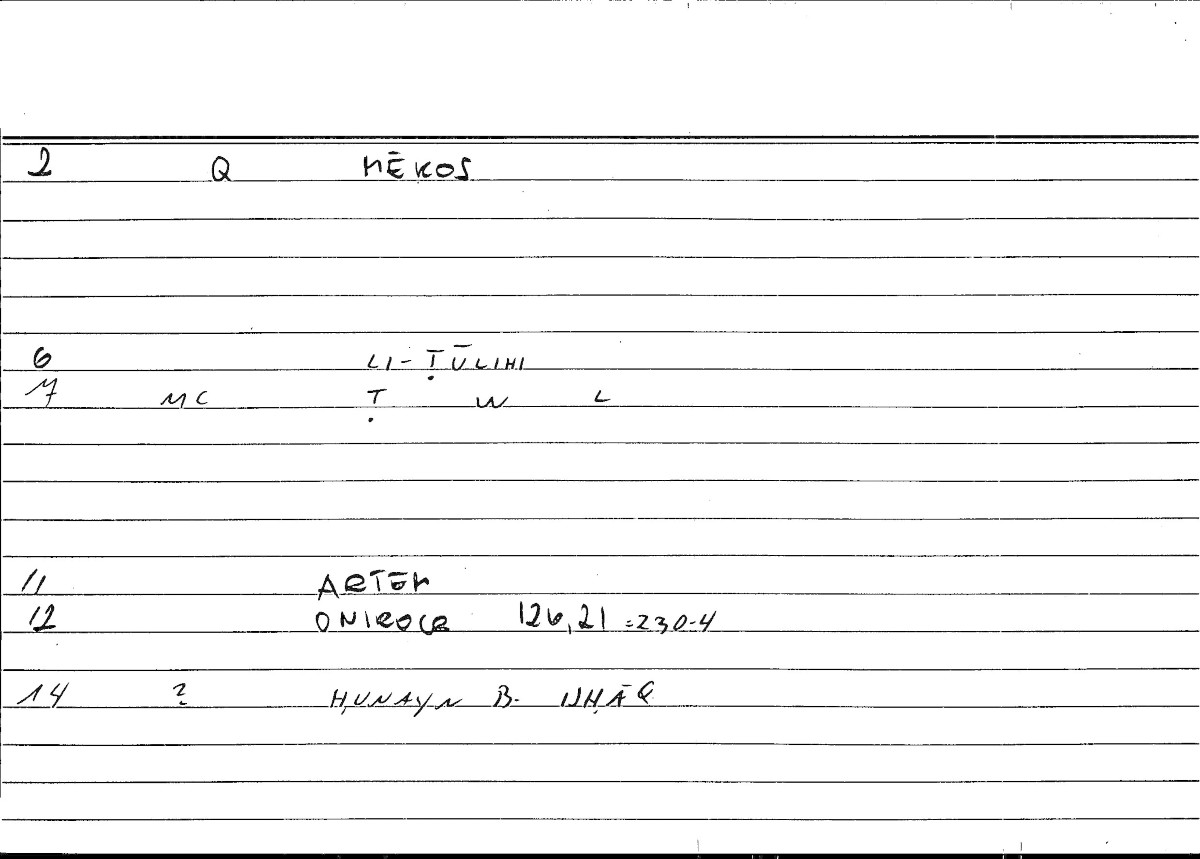 2 Q MĒKOS
6 LI-ṬŪLIHI
7 MC Ṭ W L
11 ARTEM
12 ONIROCR 126,21 =230-4
14 ? ḤUNAYN B. ISḤĀQ